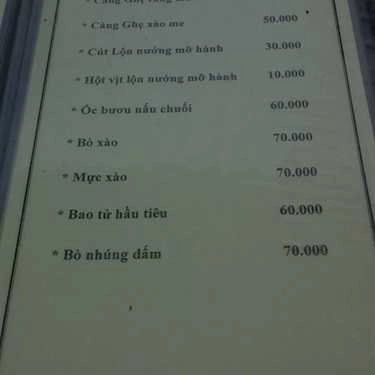 * Càng Ghẹ
* Càng Ghẹ xào me 50.000
* Cút Lộn nướng mỡ hành 30.000
* Hột vịt lộn nướng mỡ hành 10.000
* Ốc bươu nấu chuối 60.000
* Bò xào 70.000
* Mực xào 70.000
* Bao tử hầu tiêu 60.000
* Bò nhúng dấm 70.000